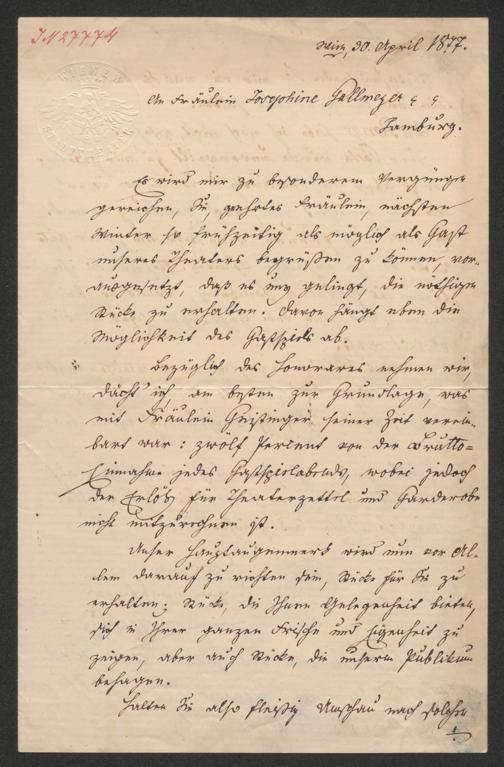 IN 27774
WIENER
STADTTHEATER
Wien, 30. April 1877.
An Fräulein Josephine Gallmeyer
Hamburg.
Es wird mir zu besonderem Vergnügen
gereichen, Sie, geehrtes Fräulein, nächsten
Winter so frühzeitig als möglich als Gast
unseres Theaters begrüßen zu können, vor-
ausgesetzt, daß es uns gelingt, die nöthigen
Stücke zu erhalten. Davon hängt eben die
Möglichkeit des Gastspiels ab.
Bezüglich des Honorares nehmen wir,
dächt' ich, am besten zur Grundlage, was
mit Fräulein Geistinger seiner Zeit verein-
bart war: zwölf Percent von der Brutto-
Einnahme jedes Gastspielabends, wobei jedoch
der Erlös für Theaterzettel und Garderobe
nicht mitzurechnen ist.
Unser Hauptaugenmerk wird nun vor Al-
lem darauf zu richten sein, Stücke für Sie zu
erhalten; Stücke, die Ihnen Gelegenheit bieten,
sich in Ihrer ganzen Frische und Eigenheit zu
zeigen, aber auch Stücke, die unserm Publikum
behagen.
Halten Sie also fleißig Umschau nach solchen